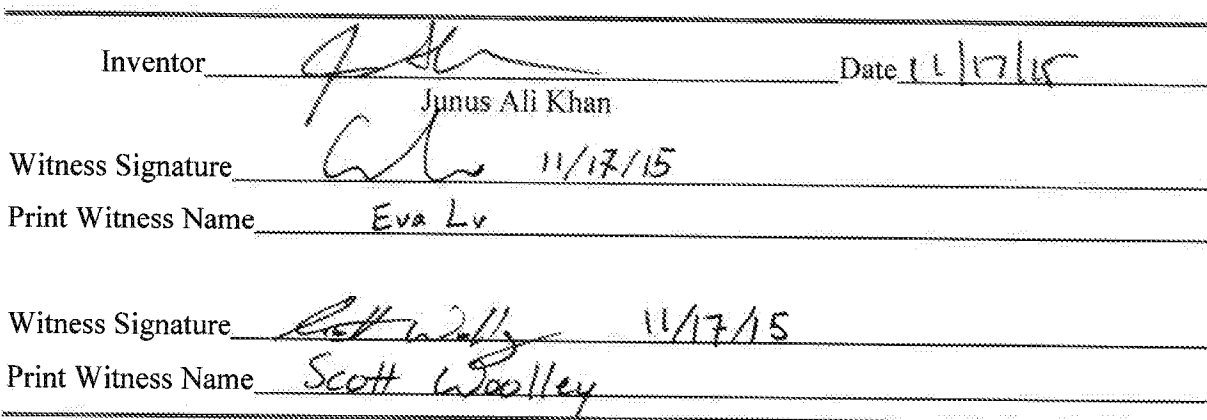 Inventor Date 11/17/15
Junus Ali Khan
Witness Signature 11/17/15
Print Witness Name Eva Lv
Witness Signature Scott Woolley 11/17/15
Print Witness Name Scott Woolley